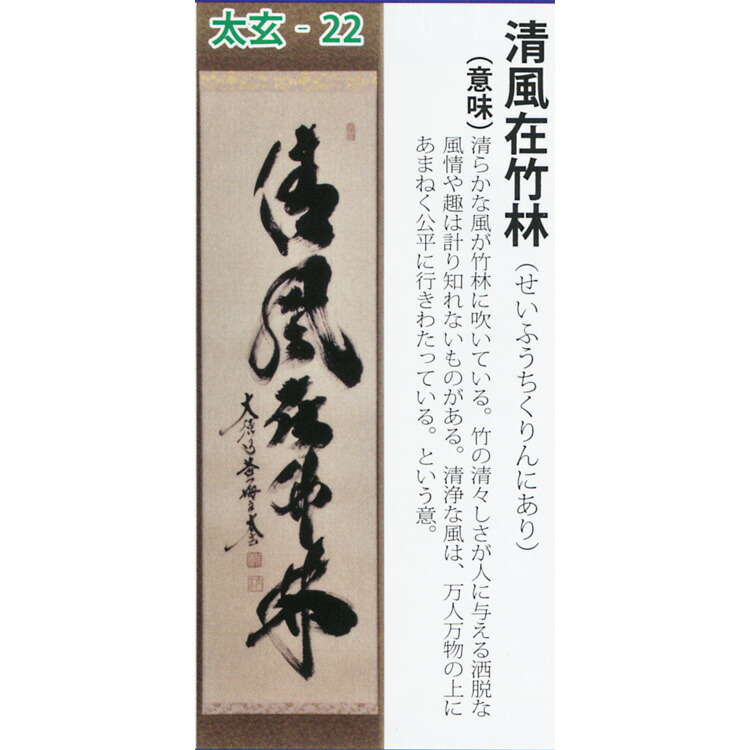 太玄 - 22
清風在竹林(せいふうちくりんにあり)
(意味)
清らかな風が竹林に吹いている。竹の清々しさが人に与える洒脱な
風情や趣は計り知れないものがある。清浄な風は、万人万物の上に
あまねく公平に行きわたっている。という意。
清風在竹林